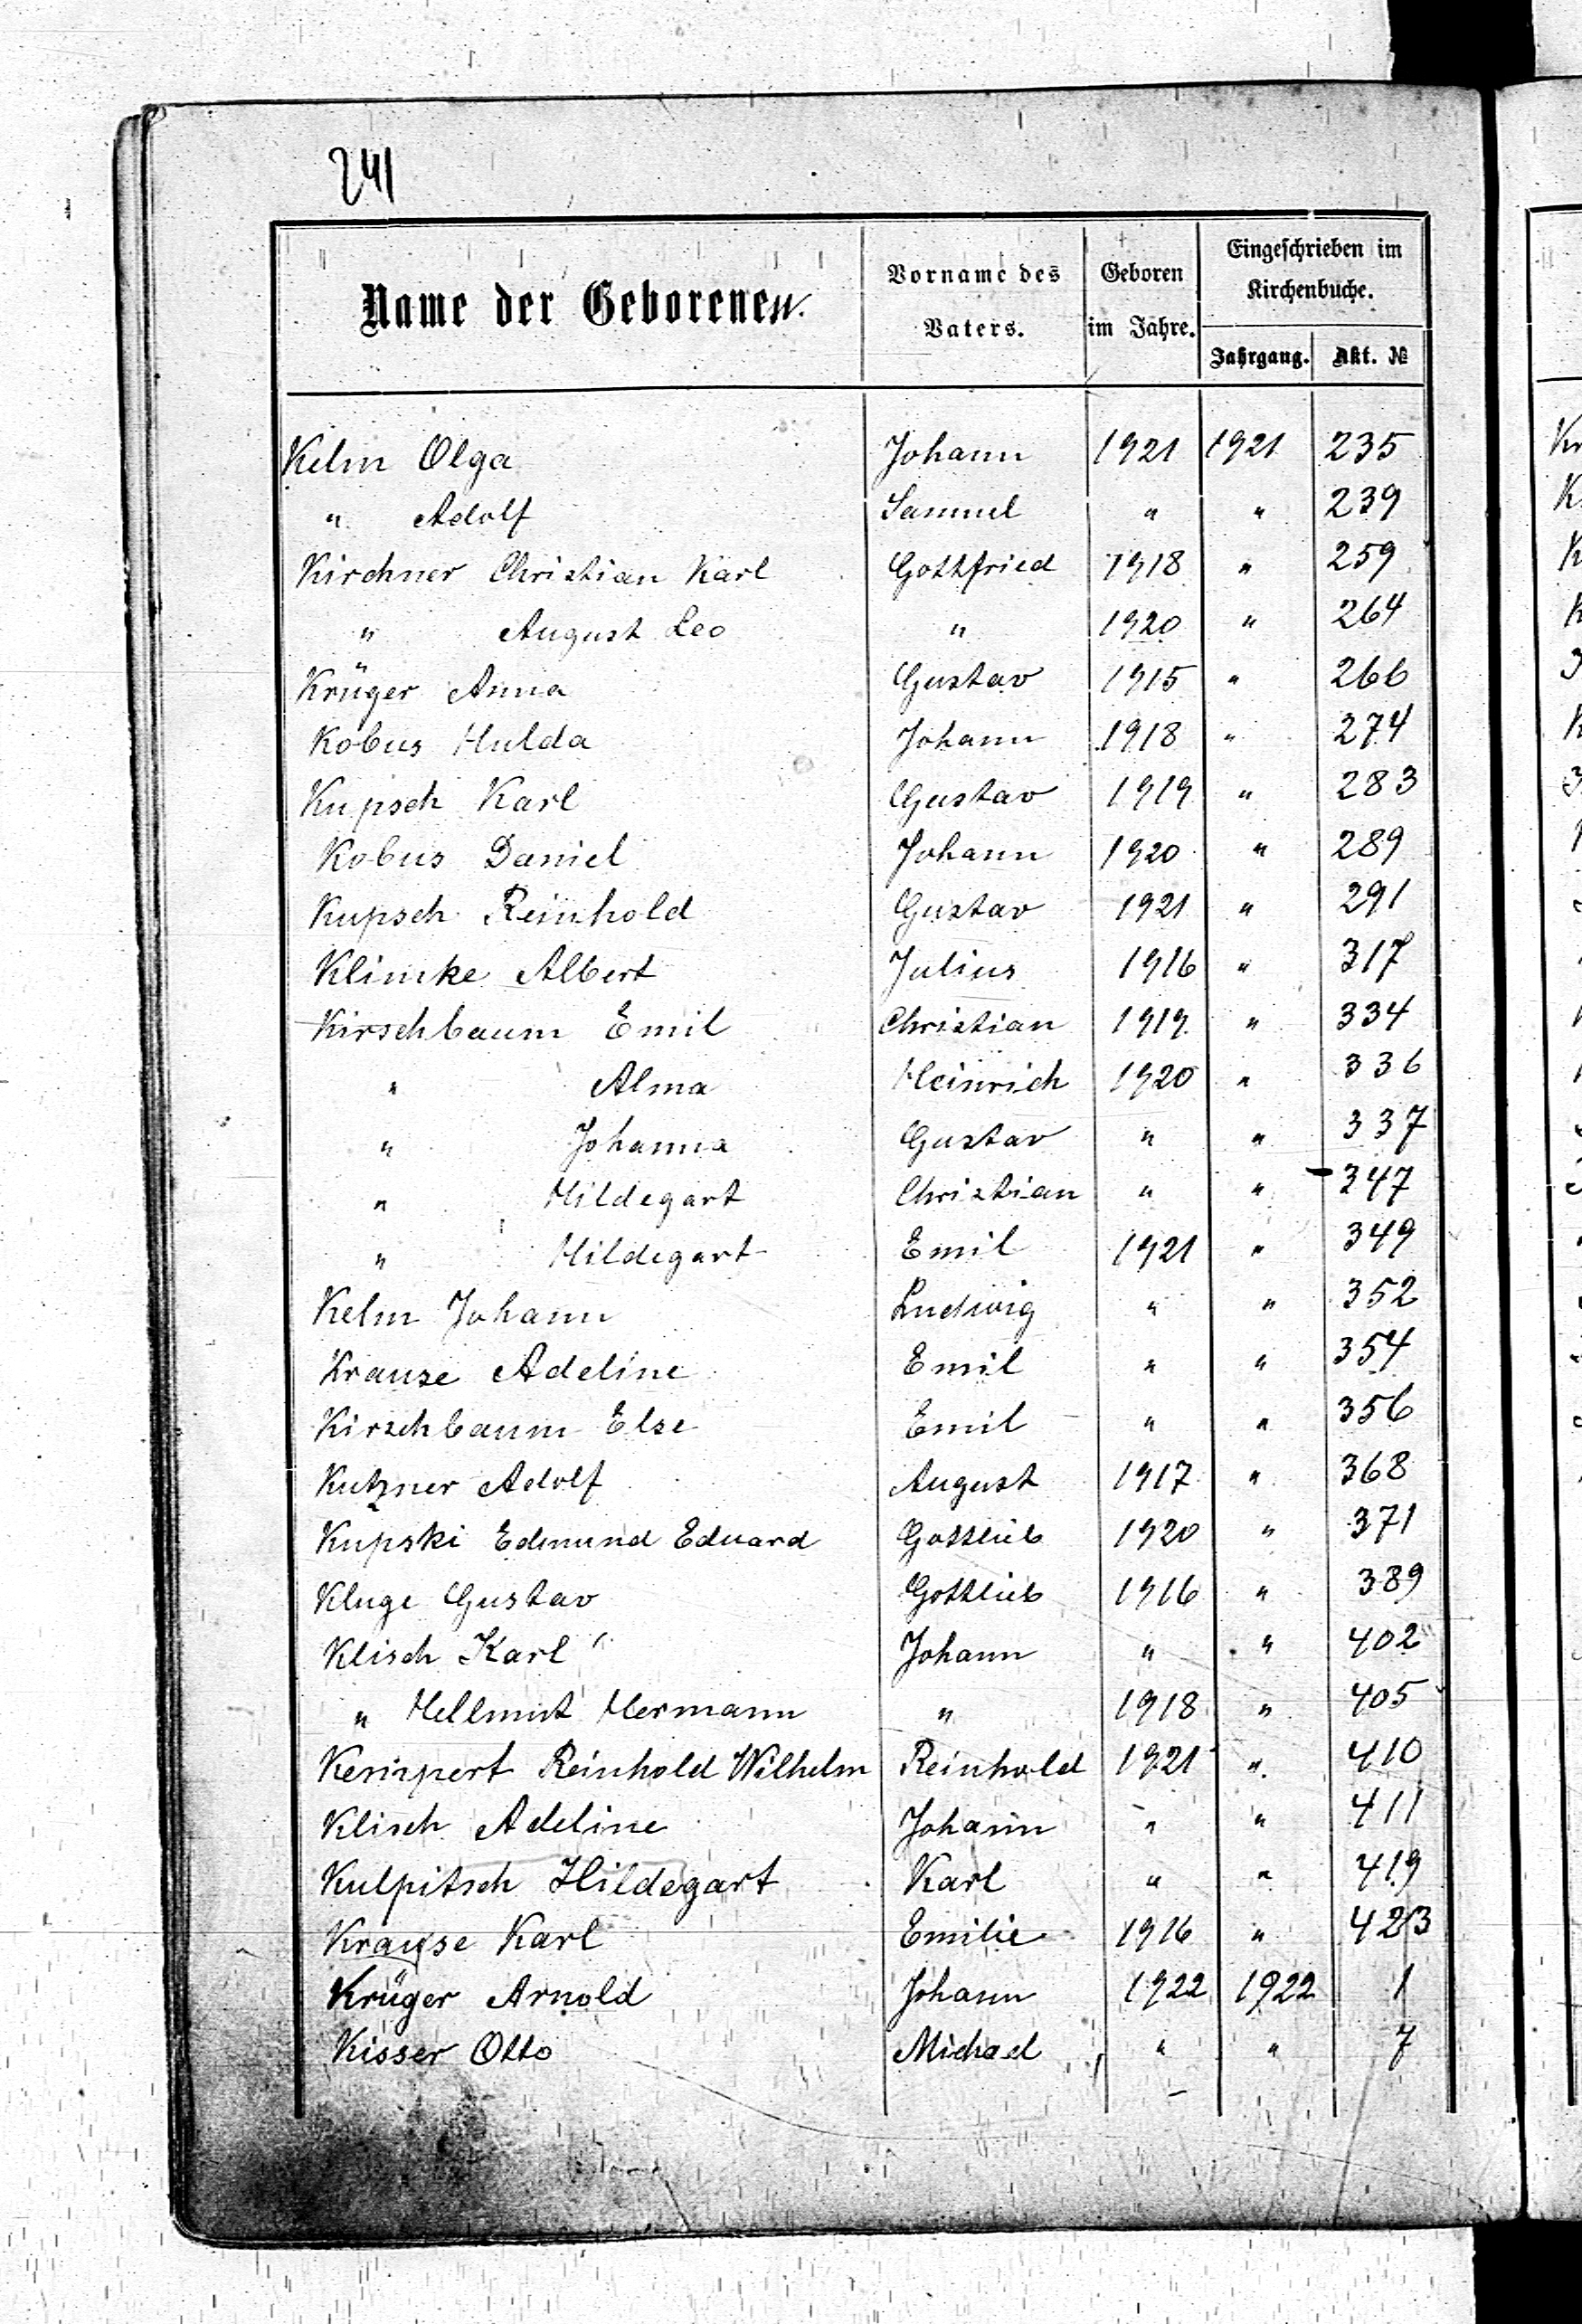 241
Name der Geborenen. Vorname des Vaters. Geboren im Jahre. Eingeschrieben im Kirchenbuche. Jahrgang. Akt. №
Kelm Olga Johann 1921 1921 235
" Adolf Samuel " " 239
Kirchner Christian Karl Gottfried 1918 " 259
" August Leo " 1920 " 264
Krüger Anna Gustav 1915 " 266
Kobus Hulda Johann 1918 " 274
Kupsch Karl Gustav 1919 " 283
Kobus Daniel Johann 1920 " 289
Kupsch Reinhold Gustav 1921 " 291
Klimke Albert Julius 1916 " 317
Kirschbaum Emil Christian 1919 " 334
" Alma Heinrich 1920 " 336
" Johanna Gustav " " 337
" Hildegart Christian " " 347
" Hildegart Emil 1921 " 349
Kelm Johann Ludwig " " 352
Krause Adeline Emil " " 354
Kirschbaum Else Emil " " 356
Kutzner Adolf August 1917 " 368
Kupski Edmund Eduard Gottlieb 1920 " 371
Kluge Gustav Gottlieb 1916 " 389
Klisch Karl Johann " " 402
" Hellmut Hermann " 1918 " 405
Kempert Reinhold Wilhelm Reinhold 1921 " 410
Klisch Adeline Johann " " 411
Kulpitsch Hildegart Karl " " 419
Krause Karl Emilie 1916 " 423
Krüger Arnold Johann 1922 1922 1
Kisser Otto Michael " " 7